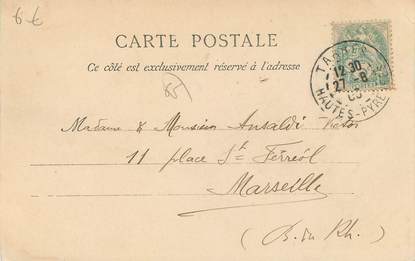 6 €
CARTE POSTALE
Ce côté est exclusivement réservé à l'adresse
TARBES
12 30
27 - 8
HAUTES-PYRE
65
Madame & Monsieur Ansaldi Victor
11 place St Ferréol
Marseille
(B. du Rh.)